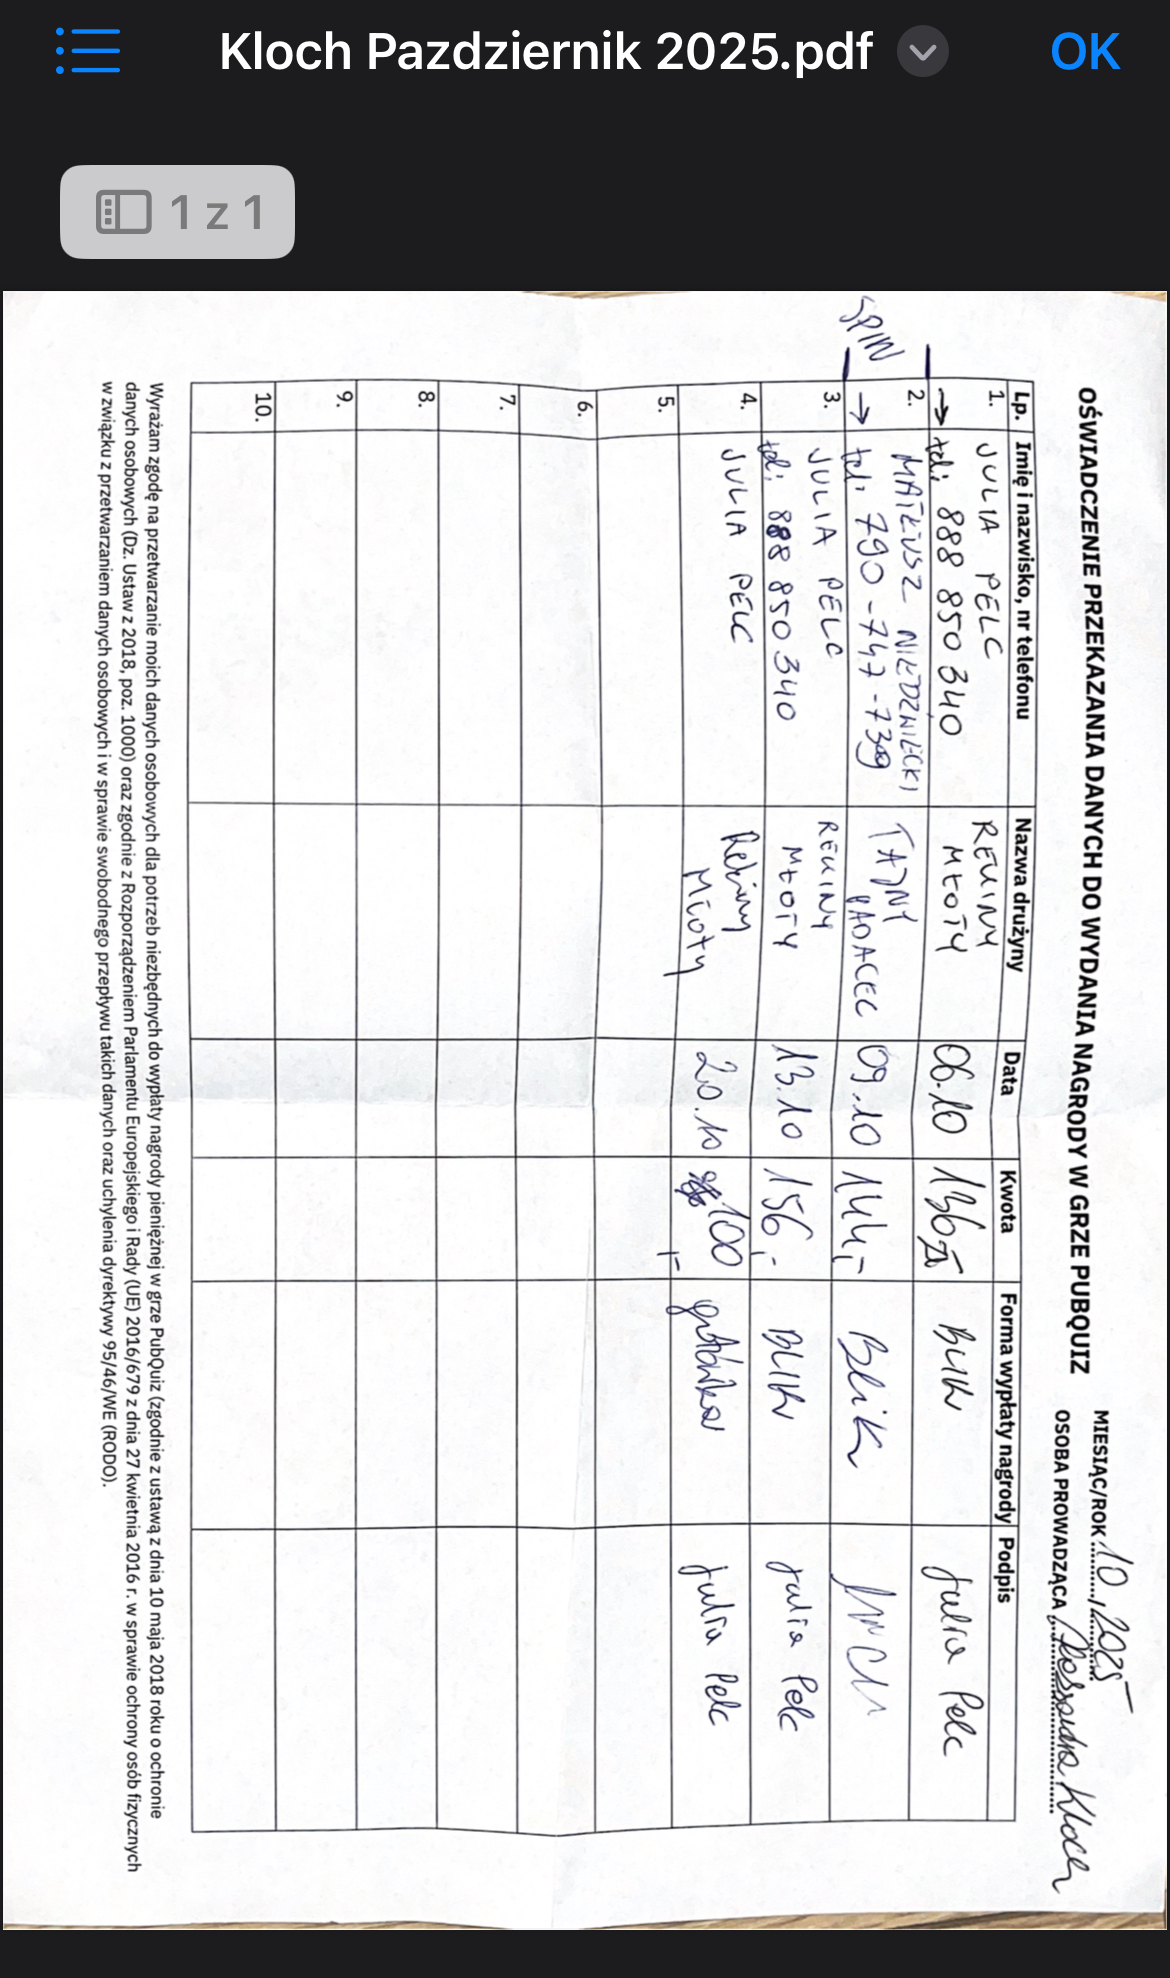 Kloch Pazdziernik 2025.pdf
OK
1 z 1
OŚWIADCZENIE PRZEKAZANIA DANYCH DO WYDANIA NAGRODY W GRZE PUBQUIZ
MIESIĄC/ROK 10, 2025
OSOBA PROWADZĄCA Kloch
SPIN
Lp. Imię i nazwisko, nr telefonu Nazwa drużyny Data Kwota Forma wypłaty nagrody Podpis
1. JULIA PELC REKINY
→ tel: 888 850 340 MŁOTY 06.10 136zł BLIK Julia Pelc
2. MATEUSZ NIEDŹWIECKI TAJNY
→ tel: 790-747-739 PADACEC 09.10 144,- Blik
3. JULIA PELC REKINY
tel: 888 850 340 MŁOTY 13.10 156,- BLIK Julia Pelc
4. JULIA PELC Rekiny
Młoty 20.10 100,- gotówka Julia Pelc
5.
6.
7.
8.
9.
10.
Wyrażam zgodę na przetwarzanie moich danych osobowych dla potrzeb niezbędnych do wypłaty nagrody pieniężnej w grze PubQuiz (zgodnie z ustawą z dnia 10 maja 2018 roku o ochronie
danych osobowych (Dz. Ustaw z 2018, poz. 1000) oraz zgodnie z Rozporządzeniem Parlamentu Europejskiego i Rady (UE) 2016/679 z dnia 27 kwietnia 2016 r. w sprawie ochrony osób fizycznych
w związku z przetwarzaniem danych osobowych i w sprawie swobodnego przepływu takich danych oraz uchylenia dyrektywy 95/46/WE (RODO).